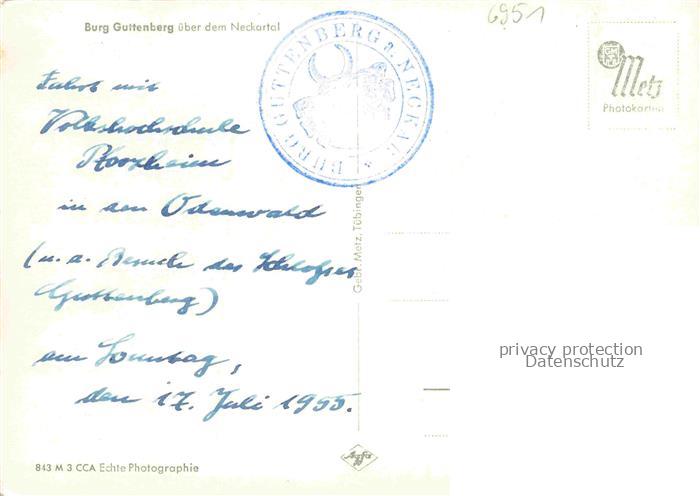 Burg Guttenberg über dem Neckartal
6951
BURG GUTTENBERG a. NECKAR
Metz
Photokarten
Fahrt mit
Volkshochschule
Pforzheim
in den Odenwald
(u. a. Besuch des Schlosses
Guttenberg)
am Sonntag,
den 17. Juli 1955.
Gebr. Metz, Tübingen
privacy protection
Datenschutz
843 M 3 CCA Echte Photographie
Agfa